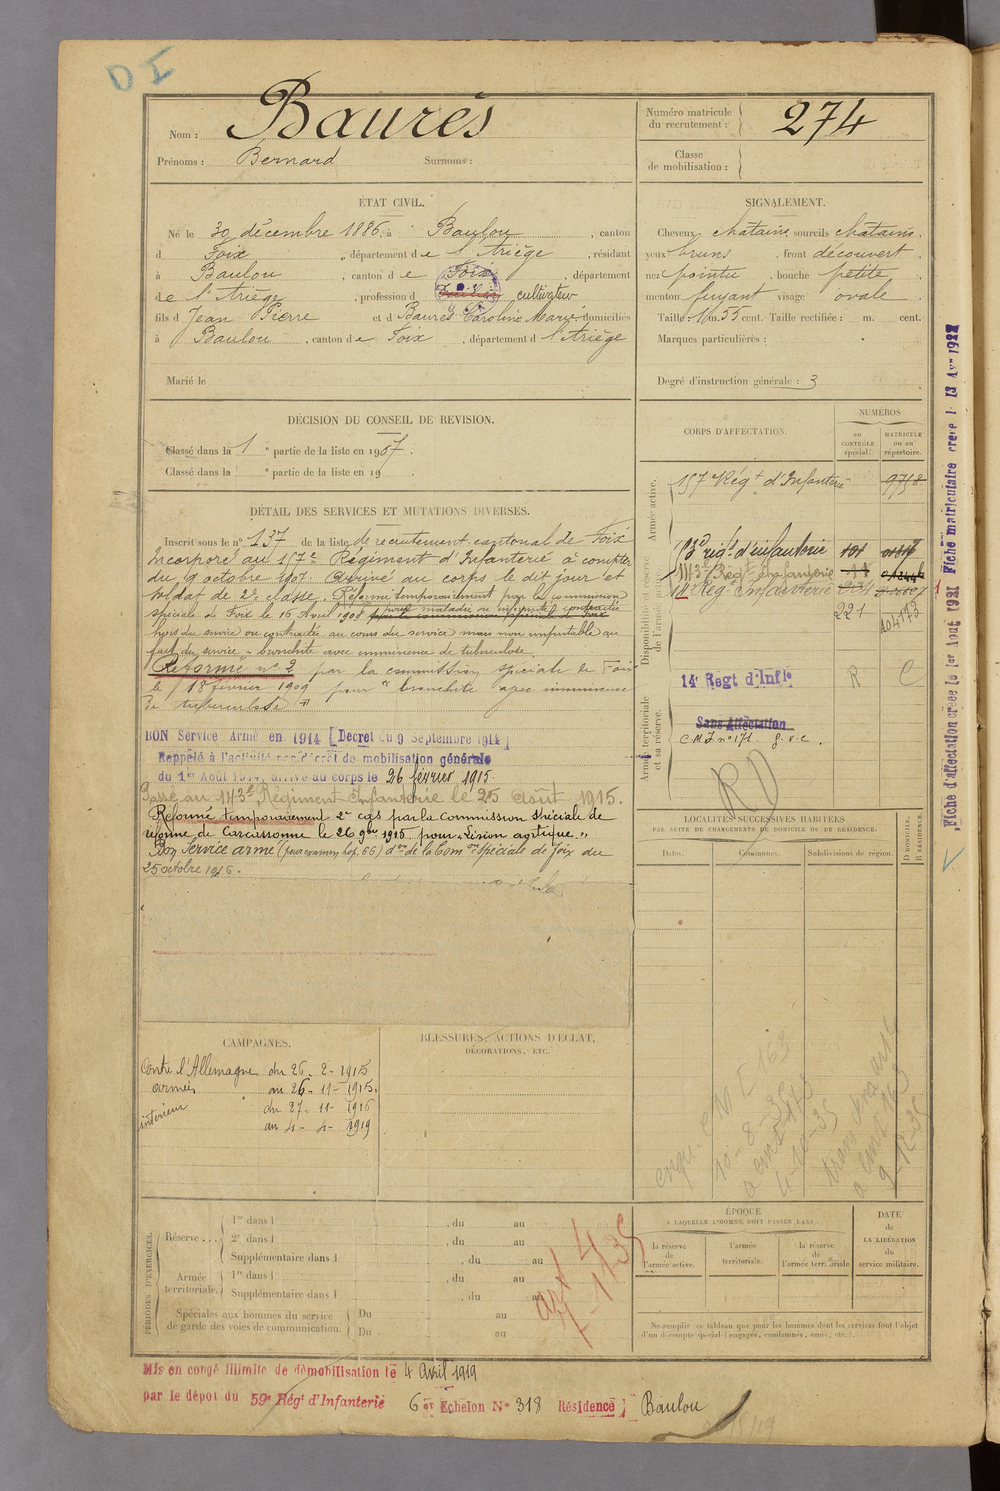 D I
Nom : Baurès
Prénoms : Bernard Surnoms :
Numéro matricule
du recrutement : 274
Classe
de mobilisation :
ÉTAT CIVIL.
Né le 30 décembre 1886, à Baulou, canton
d Foix, département de l'Ariège, résidant
à Baulou, canton de Foix, département
de l'Ariège, profession d cultivateur
fils d Jean Pierre et d Baurès Caroline Marie domiciliés
à Baulou, canton de Foix, département d l'Ariège
Marié le
SIGNALEMENT.
Cheveux châtains sourcils châtains
yeux bruns, front découvert
nez pointu, bouche petite
menton fuyant visage ovale
Taille : 1 m. 55 cent. Taille rectifiée : m. cent.
Marques particulières :
Degré d'instruction générale : 3
DÉCISION DU CONSEIL DE REVISION.
Classé dans la 1 e partie de la liste en 1907.
Classé dans la e partie de la liste en 19
DÉTAIL DES SERVICES ET MUTATIONS DIVERSES.
Inscrit sous le n° 137 de la liste de recrutement cantonal de Foix
Incorporé au 157e Régiment d'Infanterie à compter
du 9 octobre 1907. Arrivé au corps le dit jour et
soldat de 2e classe. Réformé temporairement par la commission
spéciale de Foix le 16 Avril 1908 pour maladie ou infirmité contractée
hors du service ou contractée au cours du service mais non imputable au
fait du service - bronchite avec imminence de tuberculose.
Réformé n° 2 par la commission spéciale de Foix
le 18 février 1909 pour "bronchite avec imminence
de tuberculose"
BON Service Armé en 1914 [Décret du 9 Septembre 1914]
Rappelé à l'activité par décret de mobilisation générale
du 1er Août 1914, arrivé au corps le 26 février 1915.
Passé au 143e Régiment Infanterie le 25 Août 1915.
Réformé temporairement 2e cas par la Commission spéciale de
réforme de Carcassonne le 26 9bre 1915 pour "Lésion aortique."
Bon service armé (pour examen hop. 66) don de la Comon spéciale de Foix du
25 octobre 1916.
CORPS D'AFFECTATION.
NUMÉROS
au
CONTRÔLE
spécial.
MATRICULE
ou au
répertoire.
Armée active.
157 Régt d'Infanterie 9758
Disponibilité et réserve
de l'armée active.
régt d'infanterie 101
143e Régt Infanterie
Régt Infanterie
221
Armée territoriale
et sa réserve.
14e Régt d'Infie R C
Sans Affectation
C.M.I. n° 171. g.v.c.
RD
LOCALITÉS SUCCESSIVES HABITÉES
PAR SUITE DE CHANGEMENTS DE DOMICILE OU DE RÉSIDENCE.
Dates. Communes. Subdivisions de région. D DOMICILE. R RÉSIDENCE.
Fiche d'affectation créée le 1er Août 1931 Fiche matriculaire créée le 13 Avr 1927
CAMPAGNES.
Contre l'Allemagne du 26 - 2 - 1915
armées au 26 - 11 - 1915.
intérieur du 27 - 11 - 1916
au 4 - 4 - 1919
BLESSURES, ACTIONS D'ÉCLAT,
DÉCORATIONS, ETC.
10-8-35
4-10-35
9-12-35
PÉRIODES D'EXERCICES.
Réserve...
1re dans l , du au
2e dans l , du au
Supplémentaire dans l , du au
Armée
territoriale.
1re dans l , du au
Supplémentaire dans l , du au
Spéciales aux hommes du service
de garde des voies de communication.
Du au
Du au
ÉPOQUE
A LAQUELLE L'HOMME DOIT PASSER DANS :
la réserve
de
l'armée active.
l'armée
territoriale.
la réserve
de
l'armée territoriale
DATE
de
LA LIBÉRATION
du
service militaire.
Ne remplir ce tableau que pour les hommes dont les services font l'objet
d'un décompte spécial (engagés, condamnés, omis, etc.).
Mis en congé illimité de démobilisation le 4 Avril 1919
par le dépôt du 59e Régt d'Infanterie 6e Echelon N° 318 Résidence Baulou